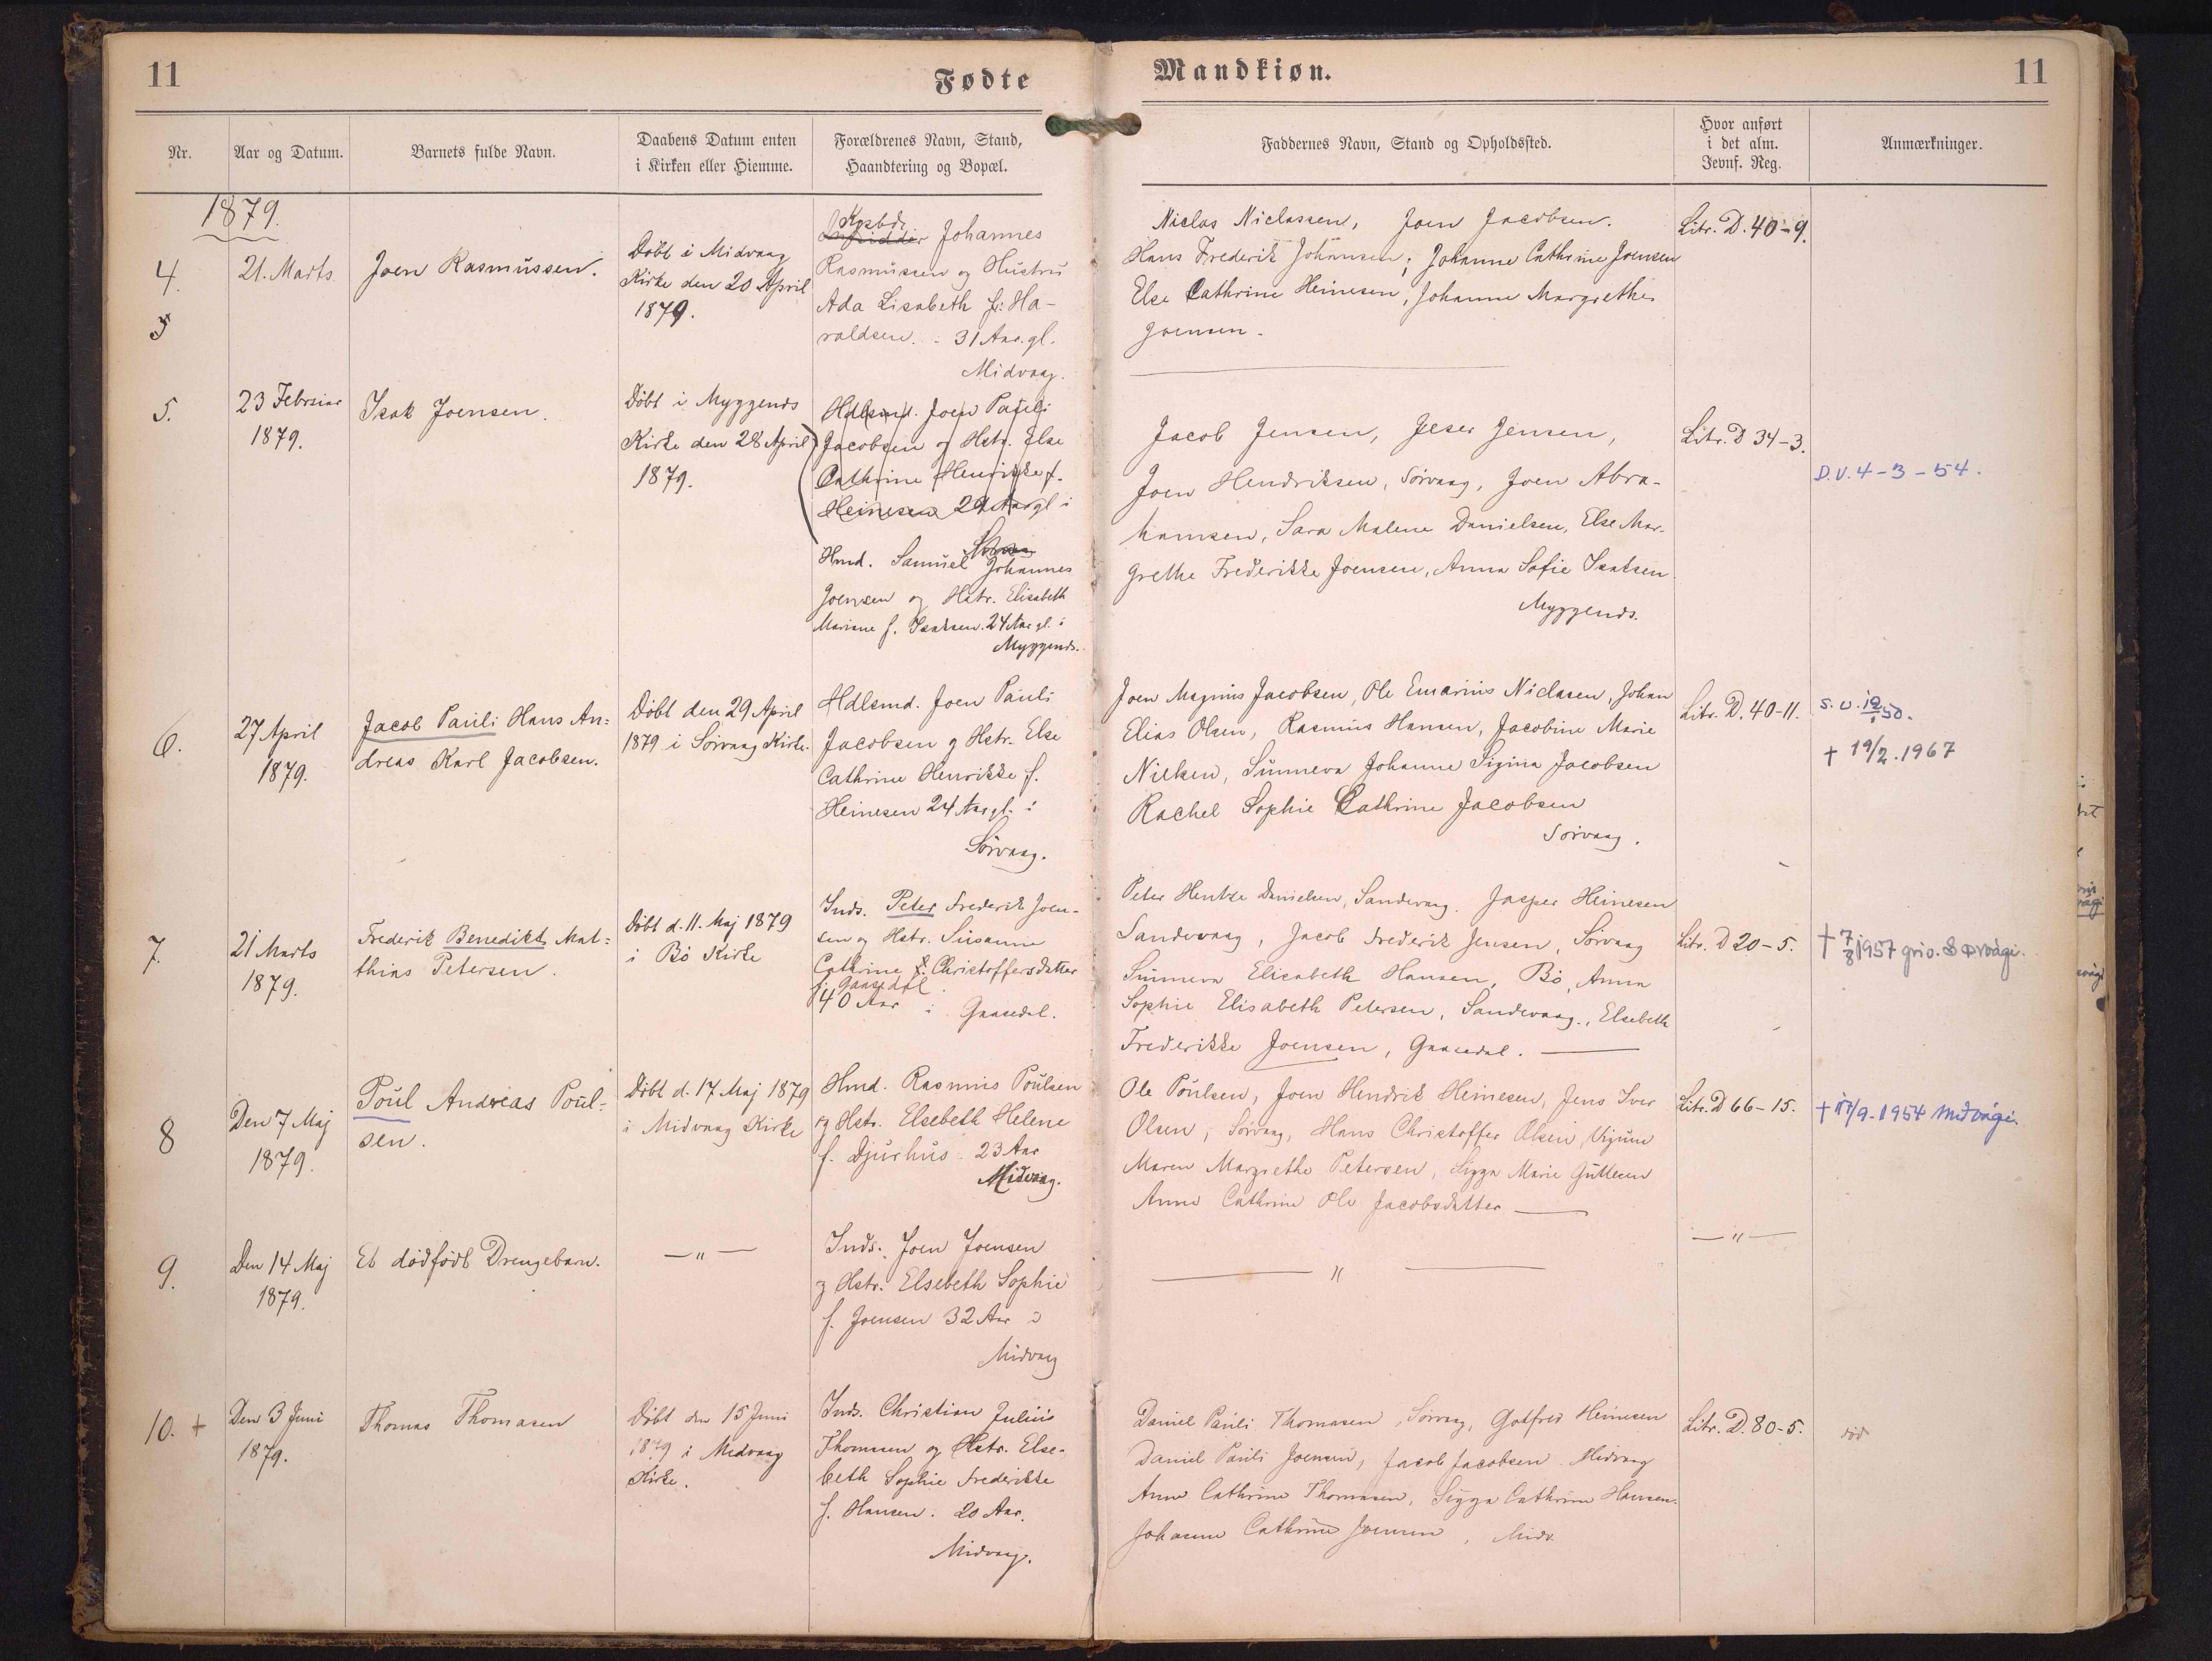 11
Fødte
Mandkiøn.
11
Nr.
Aar og Datum.
Barnets fulde Navn.
Daabens Datum enten
i Kirken eller Hiemme.
Forældrenes Navn, Stand,
Haandtering og Bopæl.
Faddernes Navn, Stand og Opholdssted.
Hvor anført
i det alm.
Jevnf. Reg.
Anmærkninger.
1879.
4.
5
21. Marts
Joen Rasmussen.
Döbt i Midvaag
Kirke den 20 April
1879.
Kgsbd.
Johannes
Rasmussen og Hustru
Ada Lisabeth f: Ha-
raldsen. - 31 Aar. gl.
Midvaag.
Niclas Niclassen, Joen Jacobsen.
Hans Frederik Johansen; Johanne Cathrine Joensen
Else Cathrine Heinesen, Johanne Margrethe
Joensen.
Litr. D. 40-9.
5.
23 Februar
1879.
Isak Joensen.
Döbt i Myggenæs
Kirke den 28 April
1879.
Hdlsmd. Joen Pauli
Jacobsen og Hstr. Else
Cathrine Henrikke f.
Heinesen 24 Aar gl i
Sörvaag
Hmd. Samuel Johannes
Joensen og Hstr. Elisabeth
Mariane f. Isaksen. 24 Aar gl. i
Myggenæs.
Jacob Jensen, Jeser Jensen,
Joen Hendriksen, Sörvaag, Joen Abra-
hamsen, Sara Malene Danielsen, Else Mar-
grethe Frederikke Joensen, Anna Sofie Isaksen
Myggenæs.
Litr. D 34-3.
D.V. 4-3-54.
6.
27 April
1879.
Jacob Pauli Hans An=
dreas Karl Jacobsen.
Döbt den 29 April
1879 i Sörvaag Kirke.
Hdlsmd. Joen Pauli
Jacobsen og Hstr. Else
Cathrine Henrikke f.
Heinesen 24 Aar gl. i
Sörvaag.
Joen Magnus Jacobsen, Ole Emarius Niclasen, Johan
Elias Olsen, Rasmus Hansen, Jacobine Marie
Nielsen, Sunneva Johanne Sigina Jacobsen
Rachel Sophie Cathrine Jacobsen
Sörvaag.
Litr. D. 40-11.
† 19/2. 1967
7.
21 Marts
1879.
Frederik Benedikt Mat=
thias Petersen.
Döbt d. 11. Maj 1879
i Bö Kirke
Inds. Peter Frederik Joen-
sen og Hstr. Susanne
Cathrine f. Christoffersdatter
f. Gaasedal.
40 Aar i Gaasedal.
Peter Hentze Danielsen, Sandevaag. Jasper Heinesen
Sandevaag, Jacob Frederik Jensen, Sörvaag
Sunneva Elisabeth Hansen, Bö, Anna
Sophie Elisabeth Petersen, Sandevaag., Elsebeth
Frederikke Joensen, Gaasedal.
Litr. D 20-5.
† 7/8 1957
8
Den 7 Maj
1879.
Poul Andreas Poul=
sen.
Döbt d. 17 Maj 1879
i Midvaag Kirke
Hmd. Rasmus Poulsen
og Hstr. Elsebeth Helene
f. Djurhus. 23 Aar
Midvaag.
Ole Poulsen, Joen Hendrik Heinesen, Jens Iver
Olsen, Sörvaag, Hans Christoffer Olsen,
Maren Margrethe Petersen, Sigga Marie Guttesen
Anne Cathrine Ole Jacobsdatter
Litr. D 66-15.
† 17/9-1954 Miðvági
9.
Den 14 Maj
1879.
Et dödfödt Drengebarn.
— " —
Inds. Joen Joensen
og Hstr. Elsebeth Sophie
f. Joensen 32 Aar i
Midvaag
— " —
— " —
10. +
Den 3 Juni
1879.
Thomas Thomasen
Döbt den 15 Juni
1879 i Midvaag
Kirke.
Inds. Christian Julius
Thomsen og Hstr. Else-
beth Sophie Frederikke
f. Hansen. 20 Aar.
Midvaag.
Daniel Pauli Thomasen, Sörvaag, Gotfred Heinesen
Daniel Pauli Joensen, Jacob Jacobsen Midvaag
Anne Cathrine Thomasen, Sigga Cathrine Hansen.
Johanne Cathrine Joensen, Midv.
Litr. D. 80-5.
död